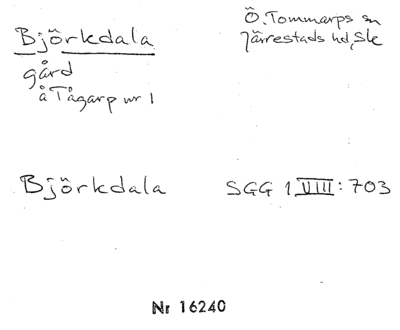 Björkdala
gård
å Tågarp nr 1
Ö. Tommarps sn
Järrestads hd, Sk
Björkdala
SGG 1 VIII: 703
Nr 16240